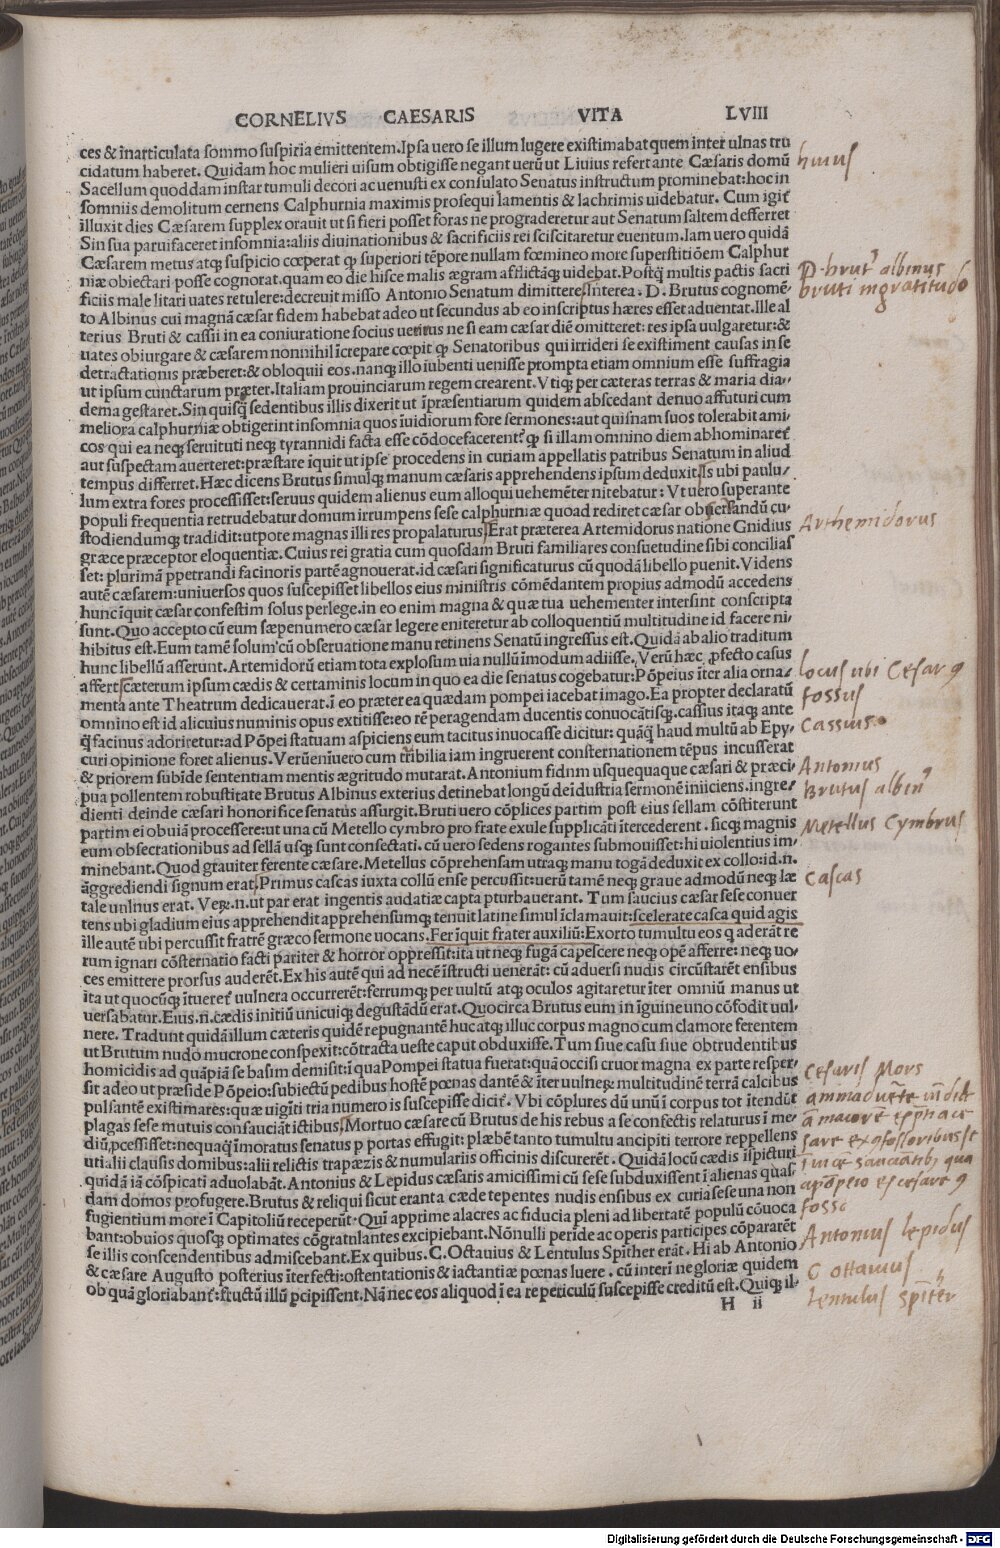 CORNELIVS CAESARIS VITA LVIII
ces & īnarticulata sommo suspiria emittentem. Ipsa uero se illum lugere existimabat quem inter ulnas tru
cidatum haberet. Quidam hoc mulieri uisum obtigisse negant uerū ut Liuius refert ante Cæsaris domū
Sacellum quoddam instar tumuli decori ac uenusti ex consulato Senatus instructum prominebat: hoc in
somniis demolitum cernens Calphurnia maximis prosequi lamentis & lachrimis uidebatur. Cum igit̄
illuxit dies Cæsarem supplex orauit ut si fieri posset foras ne prograderetur aut Senatum saltem defferret
Sin sua parui faceret insomnia: aliis diuinationibus & sacrificiis rei sciscitaretur euentum. Iam uero quidā
Cæsarem metus atq; suspicio cœperat ꝙ superiori tēpore nullam fœmineo more superstitiōem Calphur
niæ obiectari posse cognorat. quam eo die hisce malis ægram afflictāq; uidebat. Postq̄ multis pactis sacri
ficiis male litari uates retulere: decreuit misso Antonio Senatum dimittere. Interea. D. Brutus cognomē⸗
to Albinus cui magnā cæsar fidem habebat adeo ut secundus ab eo inscriptus hæres esset aduentat. Ille al
terius Bruti & cassii in ea coniuratione socius ueritus ne si eam cæsar diē omitteret: res ipsa uulgaretur: &
uates obiurgare & cæsarem nonnihil īcrepare cœpit ꝙ Senatoribus qui irrideri se existiment causas in se
detractationis præberet: & obloquii eos. nanq; illo iubenti uenisse prompta etiam omnium esse suffragia
ut ipsum cunctarum præter. Italiam prouinciarum regem crearent. Vtiq; per cæteras terras & maria dia⸗
dema gestaret. Sin quisq̄ sedentibus illis dixerit ut īpræsentiarum quidem abscedant denuo affuturi cum
meliora calphurniæ obtigerint insomnia quos īuidiorum fore sermones: aut quisnam suos tolerabit ami⸗
cos qui ea neq; seruituti neq; tyrannidi facta esse cōdocefacerent? ꝙ si illam omnino diem abhominaret̄
aut suspectam auerteret: præstare īquit ut ipse procedens in curiam appellatis patribus Senatum in aliud
tempus differret. Hæc dicens Brutus simulq; manum cæsaris apprehendens ipsum deduxit. Is ubi paulu⸗
lum extra fores processisset: seruus quidem alienus eum alloqui uehemēter nitebatur: Vt uero superante
populi frequentia retrudebatur domum irrumpens sese calphurniæ quoad rediret cæsar obseruandū cu⸗
stodiendumq; tradidit: ut pote magnas illi res propalaturus. Erat præterea Artemidorus natione Gnidius
græce præceptor eloquentiæ. Cuius rei gratia cum quosdam Bruti familiares consuetudine sibi concilias
set: plurimā ꝑpetrandi facinoris partē agnouerat. id cæsari significaturus cū quodā libello puenit. Videns
autē cæsarem: uniuersos quos suscepisset libellos eius ministris cōmēdantem propius admodū accedens
hunc īquit cæsar confestim solus perlege. in eo enim magna & quæ tua uehementer intersint conscripta
sunt. Quo accepto cū eum sæpenumero cæsar legere eniteretur ab colloquentiū multitudine id facere ni⸗
hibitus est. Eum tamē solum cū obseruatione manu retinens Senatū ingressus est. Quidā ab alio traditum
hunc libellū asserunt. Artemidorū etiam tota explosum uia nullū īmodum adiisse. Verū hæc ꝓfecto casus
affert. Cæterum ipsum cædis & certaminis locum in quo ea die senatus cogebatur: Pōpeius īter alia orna⸗
menta ante Theatrum dedicauerat. ī eo præterea quædam pompei iacebat imago. Ea propter declaratū
omnino est id alicuius numinis opus extitisse: eo rē peragendam ducentis conuocātisq;. cassius itaq; ante
q̄ facinus adoriretur: ad Pōpei statuam aspiciens eum tacitus inuocasse dicitur: quāq̄ haud multū ab Epy⸗
curi opinione foret alienus. Verūenīuero cum tribilia iam ingruerent consternationem tēpus incusserat
& priorem subīde sententiam mentis ægritudo mutarat. Antonium fidnm usquequaque cæsari & præci⸗
pua pollentem robustitate Brutus Albinus exterius detinebat longū de īdustria sermonē iniiciens. ingre⸗
dienti deinde cæsari honorifice senatus assurgit. Bruti uero cōplices partim post eius sellam cōstiterunt
partim ei obuiā processere: ut una cū Metello cymbro pro frate exule supplicāti ītercederent. sicq; magnis
eum obsecrationibus ad sellā usq; sunt consectati. cū uero sedens rogantes submouisset: hi uiolentius im⸗
minebant. Quod grauiter ferente cæsare. Metellus cōprehensam utraq; manu togā deduxit ex collo: id. n.
āggrediendi signum erat. Primus cascas iuxta collū ense percussit: uerū tamē neq; graue admodū neq; læ
tale uulnus erat. Veꝝ. n. ut par erat ingentis audatiæ capta pturbauerant. Tum saucius cæsar sese conuer
tens ubi gladium eius apprehendit apprehensumq; tenuit latine simul īclamauit: scelerate casca quid agis
ille autē ubi percussit fratrē græco sermone uocans. Fer īquit frater auxiliū: Exorto tumultu eos q aderāt re
rum ignari cōsternatio facti pariter & horror oppressit: ita ut neq; fugā capescere neq; opē afferre: neq; uo⸗
ces emittere prorsus auderēt. Ex his autē qui ad necē īstructi uenerāt: cū aduersi nudis circūstarēt ensibus
īta ut quocūq; ītueret̄ uulnera occurrerēt: ferrumq; per uultū atq; oculos agitaretur īter omniū manus ut
uersabatur. Eius. n. cædis initiū unicuiq; degustādū erat. Quocirca Brutus eum in īguine uno cōfodit uul⸗
nere. Tradunt quidā illum cæteris quidē repugnantē huc atq; illuc corpus magno cum clamore ferentem
ut Brutum nudo mucrone conspexit: cōtracta ueste caput obduxisse. Tum siue casu siue obtrudentibus
homicidis ad quāpiā se basim demisit: ī qua Pompei statua fuerat: quā occisi cruor magna ex parte resper⸗
sit adeo ut præside Pōpeio: subiectū pedibus hostē pœnas dantē & īter uulneꝝ multitudinē terrā calcibus
pulsantē existimares: quæ uigīti tria numero is suscepisse dicit̄. Vbi cōplures dū unū ī corpus tot ītendūt
plagas sese mutuis consauciāt īctibus. Mortuo cæsare cū Brutus de his rebus a se confectis relaturus ī me⸗
diū pcessisset: nequaq̄ īmoratus senatus p portas effugit: plæbē tanto tumultu ancipiti terrore reppellens
uti alii clausis domibus: alii relictis trapæzis & numulariis officinis discurerēt. Quidā locū cædis īspicturi
quidā iā cōspicati aduolabāt. Antonius & Lepidus cæsaris amicissimi cū sese subduxissent ī alienas quas⸗
dam domos profugere. Brutus & reliqui sicut erant a cæde tepentes nudis ensibus ex curia sese una non
fugientium more ī Capitoliū receperūt. Qui apprime alacres ac fiducia pleni ad libertatē populū cōuoca
bant: obuios quosq; optimates cōgratulantes excipiebant. Nōnulli perīde ac operis participes cōpararēt
se illis conscendentibus admiscebant. Ex quibus. C. Octauius & Lentulus Spither erāt. Hi ab Antonio
& cæsare Augusto posterius īterfecti: ostentationis & iactantiæ pœnas luere. cū interī ne gloriæ quidem
ob quā gloriabant̄: fructū illū pcipissent. Nā nec eos aliquod ī ea re periculū suscepisse creditū est. Quiq; il⸗
H ii
huius
D. brut' albinus
bruti ingratitudo
Arthemidorus
locus ubi Cesar 9
fossus
Cassius
Antonius
Brutus albin'
Metellus Cymbrus
Cascas
Cesaris Mors
Antonius lepidus
C ottauius
Lentulus spither